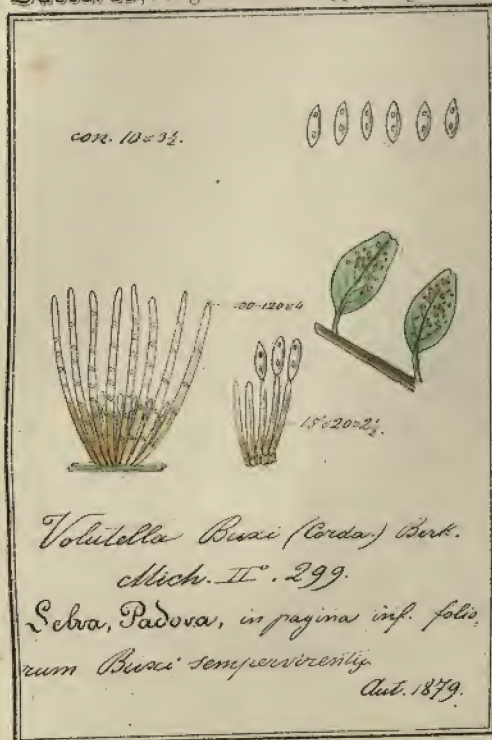 con. 10=3½.
120=4
15=20=2½.
Volutella Buxi (Corda.) Berk.
Mich. II°. 299.
Selva, Padova, in pagina inf. folio,
rum Buxi sempervirentis
Aut. 1879.